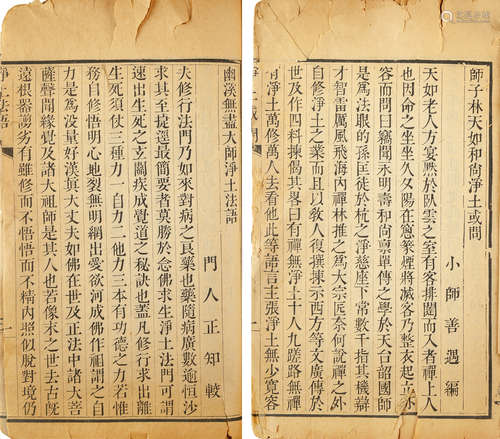 師子林天如和尚淨土或問
小師善遇編
天如老人方宴默於臥雲之室有客排闥而入者禪上人
也因命之坐坐久夕陽在窻篆煙將滅客乃整衣起立
容而問曰竊聞永明壽和尚稟單傳之學於天台韶國師
是為法眼的孫匡徒於杭之淨慈座下常數千指其機辯
才智雷厲風飛海內禪林推之為大宗匠奈何說禪之外
自修淨土之業而且以敎人復撰揀示西方等文廣傳於
世及作四料揀偈其畧曰有禪無淨土十人九蹉路無禪
有淨土萬修萬人去看他此等語言主張淨土無少寬容
幽溪無盡大師淨土法語
門人正知較
夫修行法門乃如來對病之良藥也藥隨病廣數逾恒沙
求其至捷逕最簡要者莫勝於念佛求生淨土法門可謂
速出生死之玄關疾成覺道之秘訣也葢凡修行求出離
生死須仗三種力一自力二他力三本有功德之力若惟
務自修悟明心地裂無明網出愛欲河成佛作祖謂之自
力是為没量好漢眞大丈夫如佛在世及正法中諸大菩
薩聲聞緣覺及諸大祖師是其人也若像末之世去古旣
遠根器謭劣有雖修而不悟悟而不精內照似脫對境仍
土法語
一